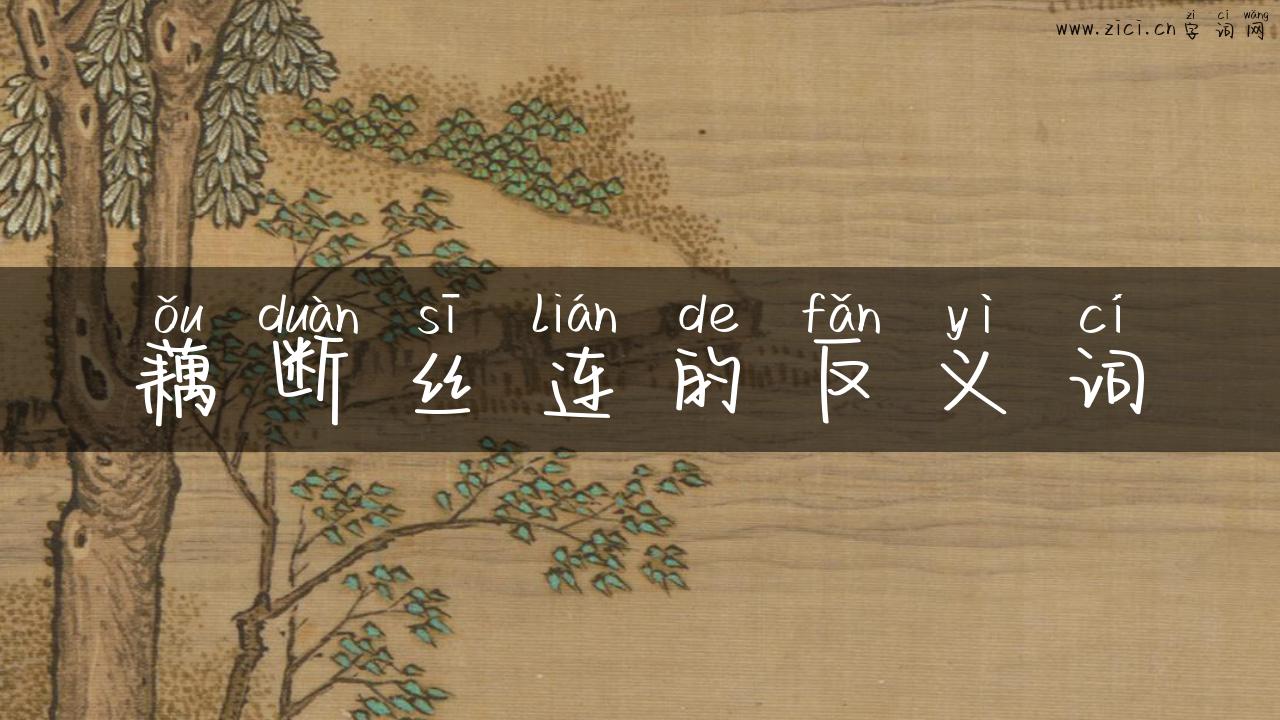 zì cí wǎng
www.zici.cn字词网
ǒu duàn sī lián de fǎn yì cí
藕断丝连的反义词